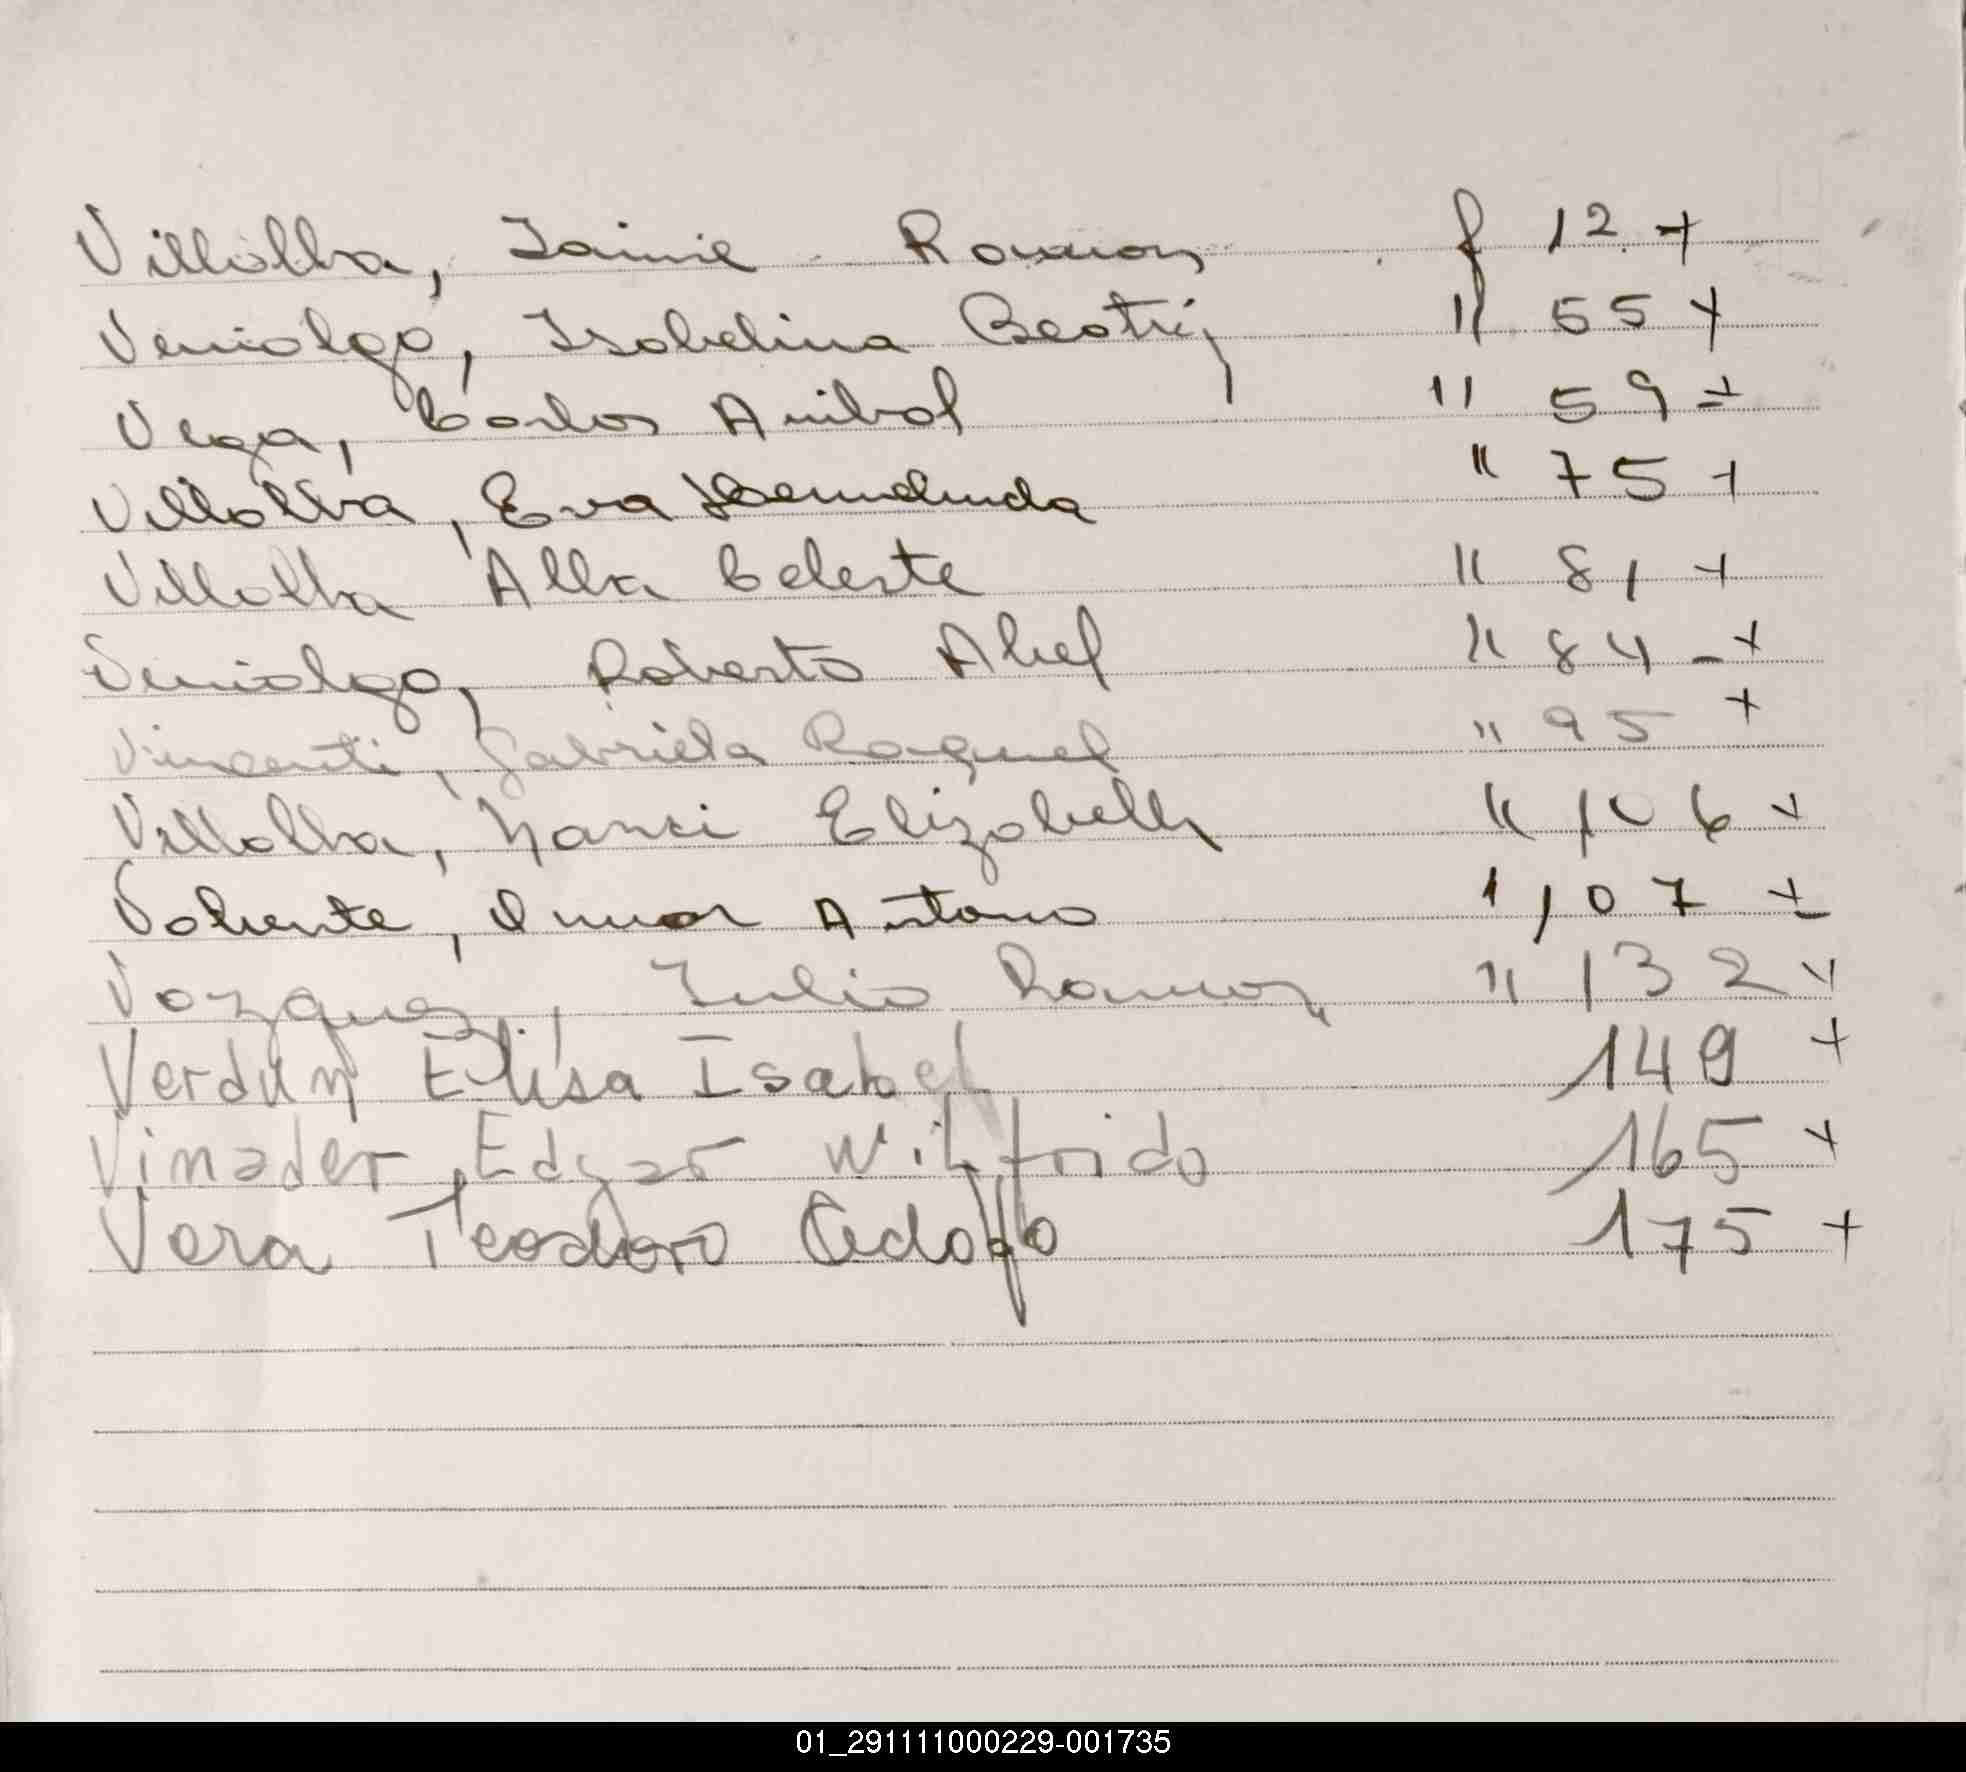 Villalba, Jaime Ramon f 12 +
Venialgo, Isabelina Beatriz " 55 +
Vega, Carlos Anibal " 59 +
Villalba, Eva " 75 +
Villalba Alba Celeste " 81 +
Venialgo, Roberto Abel " 84 - +
Vincenti, Gabriela Raquel " 95 +
Villalba, Nanci Elizabeth " 106 +
Valiente, Omar Antonio " 107 +
Vazquez, Julio Ramon " 132 +
Verdun Elisa Isabel 149 +
Vinader Edgar Wilfrido 165 +
Vera Teodoro Adolfo 175 +
01_291111000229-001735